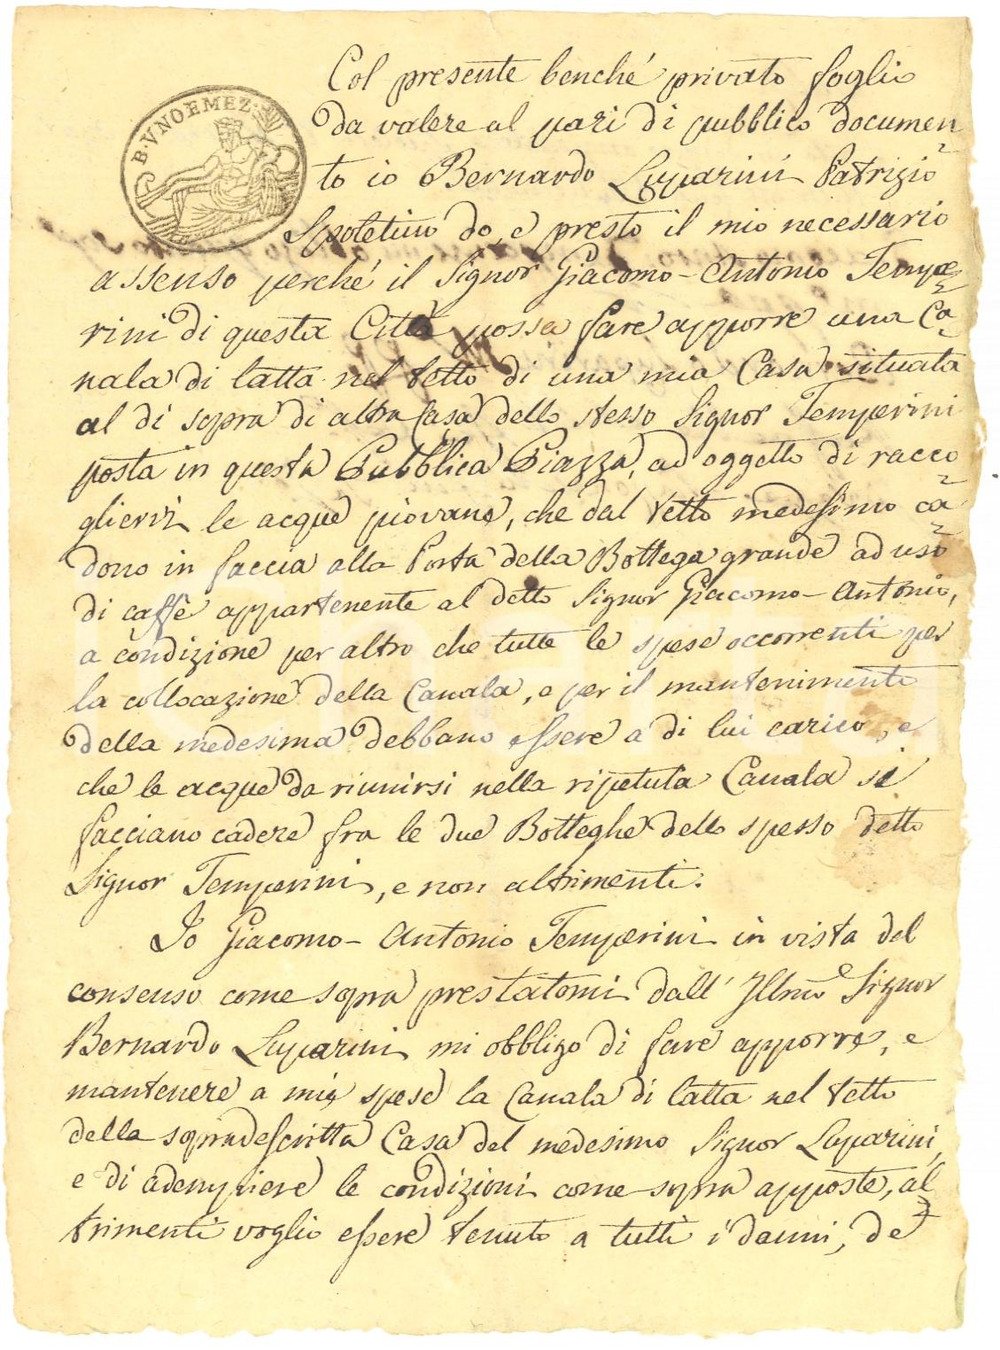 B. V NOEMEZ.
Col presente benché privato foglio
da valere al pari di pubblico documen
to io Bernardo Luparini Patrizio
Spoletino do, e presto il mio necessario
assenso perché il Signor Giacomo-Antonio Tempe
rini di questa Città possa fare apporre una Ca
nala di latta nel tetto di una mia Casa situata
al di sopra di altra Casa dello stesso Signor Temperini
posta in questa Pubblica Piazza, ad oggetto di racco
glierci le acque piovane, che dal tetto medesimo ca
dono in faccia alla Porta della Bottega grande ad uso
di caffè appartenente al detto Signor Giacomo-Antonio,
a condizione per altro che tutte le spese occorrenti per
la collocazione della Canala, e per il mantenimento
della medesima debbano essere a di lui carico, e
che le acque da riunirsi nella ripututa Canala si
facciano cadere fra le due Botteghe dello spesso detto
Signor Temperini, e non altrimenti.
Io Giacomo-Antonio Temperini in vista del
consenso come sopra prestatomi dall' Illmo Signor
Bernardo Luparini mi obbligo di fare apporre, e
mantenere a mie spese la Canala di latta nel tetto
della sopradescritta Casa del medesimo Signor Luparini,
e di adempiere le condizioni come sopra apposte, al
trimenti voglio essere tenuto a tutti i danni, de